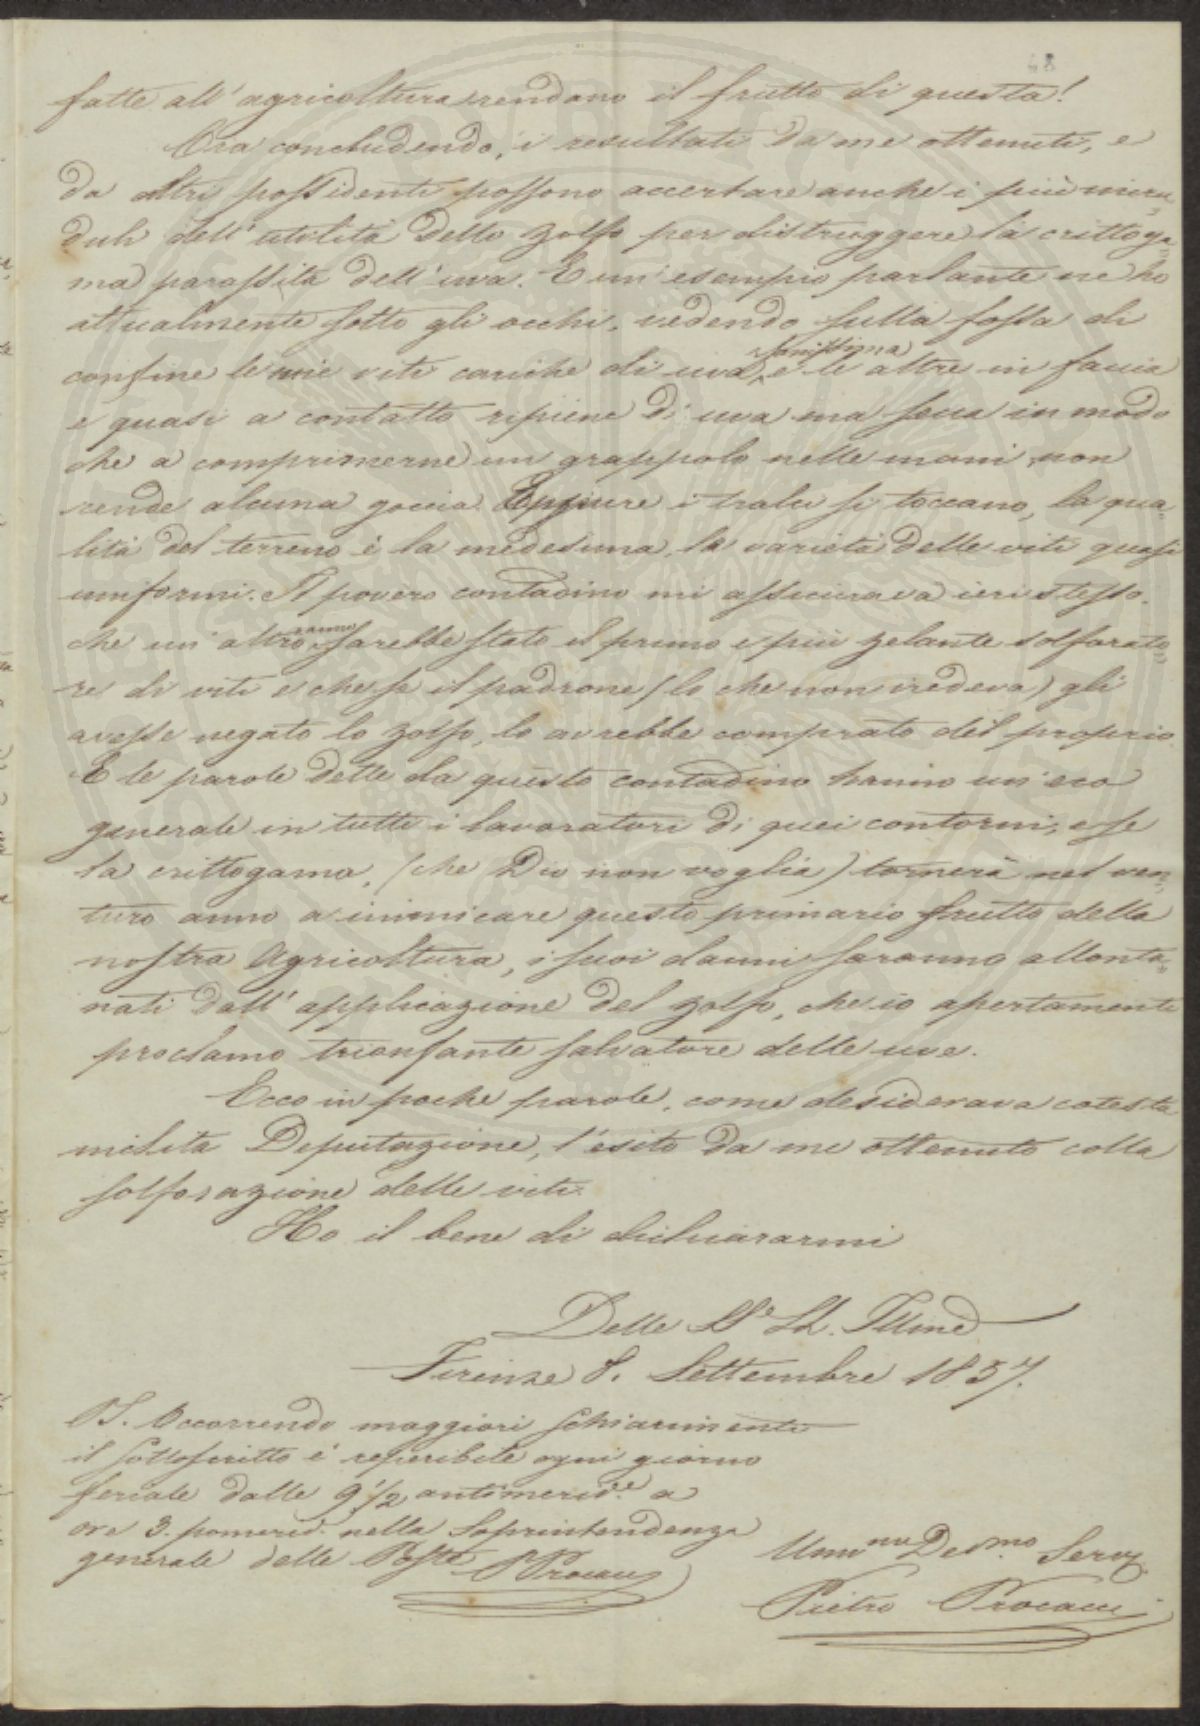 48
fatte all' agricoltura rendano il frutto di questa!
Ora concludendo, i resultati da me ottenuti, e
da altri possidenti possono accertare anche i più incre-
duli dell' utilità dello zolfo per distruggere la crittoga-
ma parassita dell' uva. E un' esempio parlante ne ho
attualmente sotto gli occhi, vedendo sulla fossa di
confine le mie viti cariche di uva sanissima, e le altre in faccia
e quasi a contatto ripiene di uva ma secca in modo
che a comprimerne un grappolo nelle mani non
rende alcuna goccia. Eppure i tralci si toccano, la qua-
lità del terreno è la medesima, la varietà delle viti quasi
uniformi. Il povero contadino mi assicurava ieri stesso
che un' altro anno sarebbe stato il primo e più zelante solforato-
re di viti e che se il padrone (lo che non credeva) gli
avesse negato lo zolfo, lo avrebbe comprato del proprio.
E le parole dette da questo contadino hanno un' eco
generale in tutti i lavoratori di quei contorni, e se
la crittogama, (che Dio non voglia) tornerà nel ven-
turo anno a inimicare questo primario frutto della
nostra Agricoltura, i suoi danni saranno allonta-
nati dall' applicazione del zolfo, che io apertamente
proclamo trionfante salvatore delle uve.
Ecco in poche parole, come desiderava cotesta
inclita Deputazione, l'esito da me ottenuto colla
solforazione delle viti.
Ho il bene di dichiararmi
Delle LL. Illme
Firenze 8. Settembre 1857.
PS. Occorrendo maggiori schiarimenti
il sottoscritto è reperibile ogni giorno
feriale dalle 9 1/2 antimerid.e a
ore 3. pomerid. nella Soprintendenza
generale delle Poste PProcacci
Umimo Devmo Serv.
Pietro Procacci